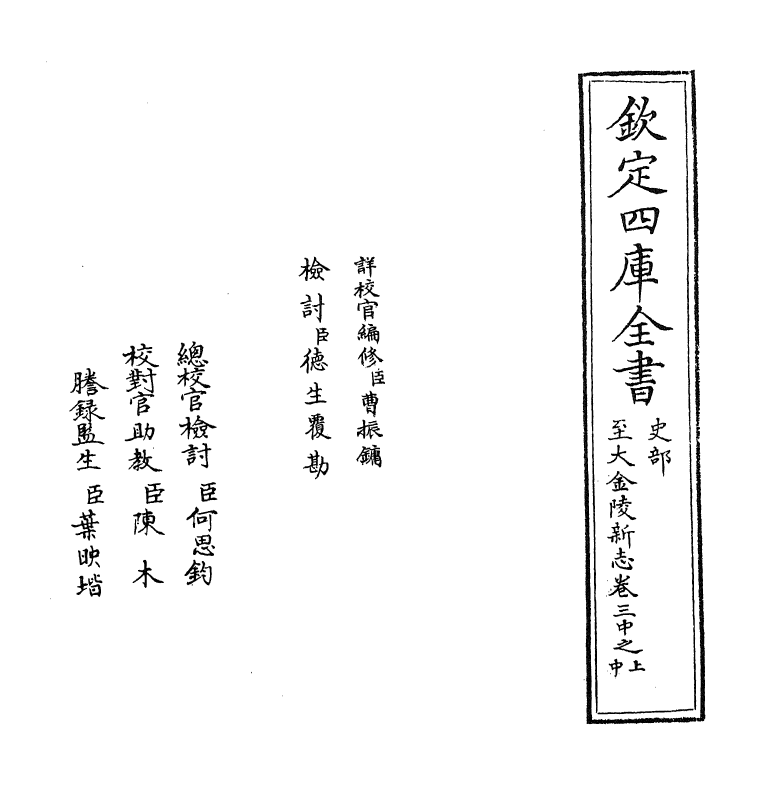 欽定四庫全書
史部
至大金陵新志卷三中之上中
詳校官編修臣曹振鏞
檢討臣德生覆勘
總校官檢討臣何思鈞
校對官助教臣陳木
謄録監生臣葉映堦